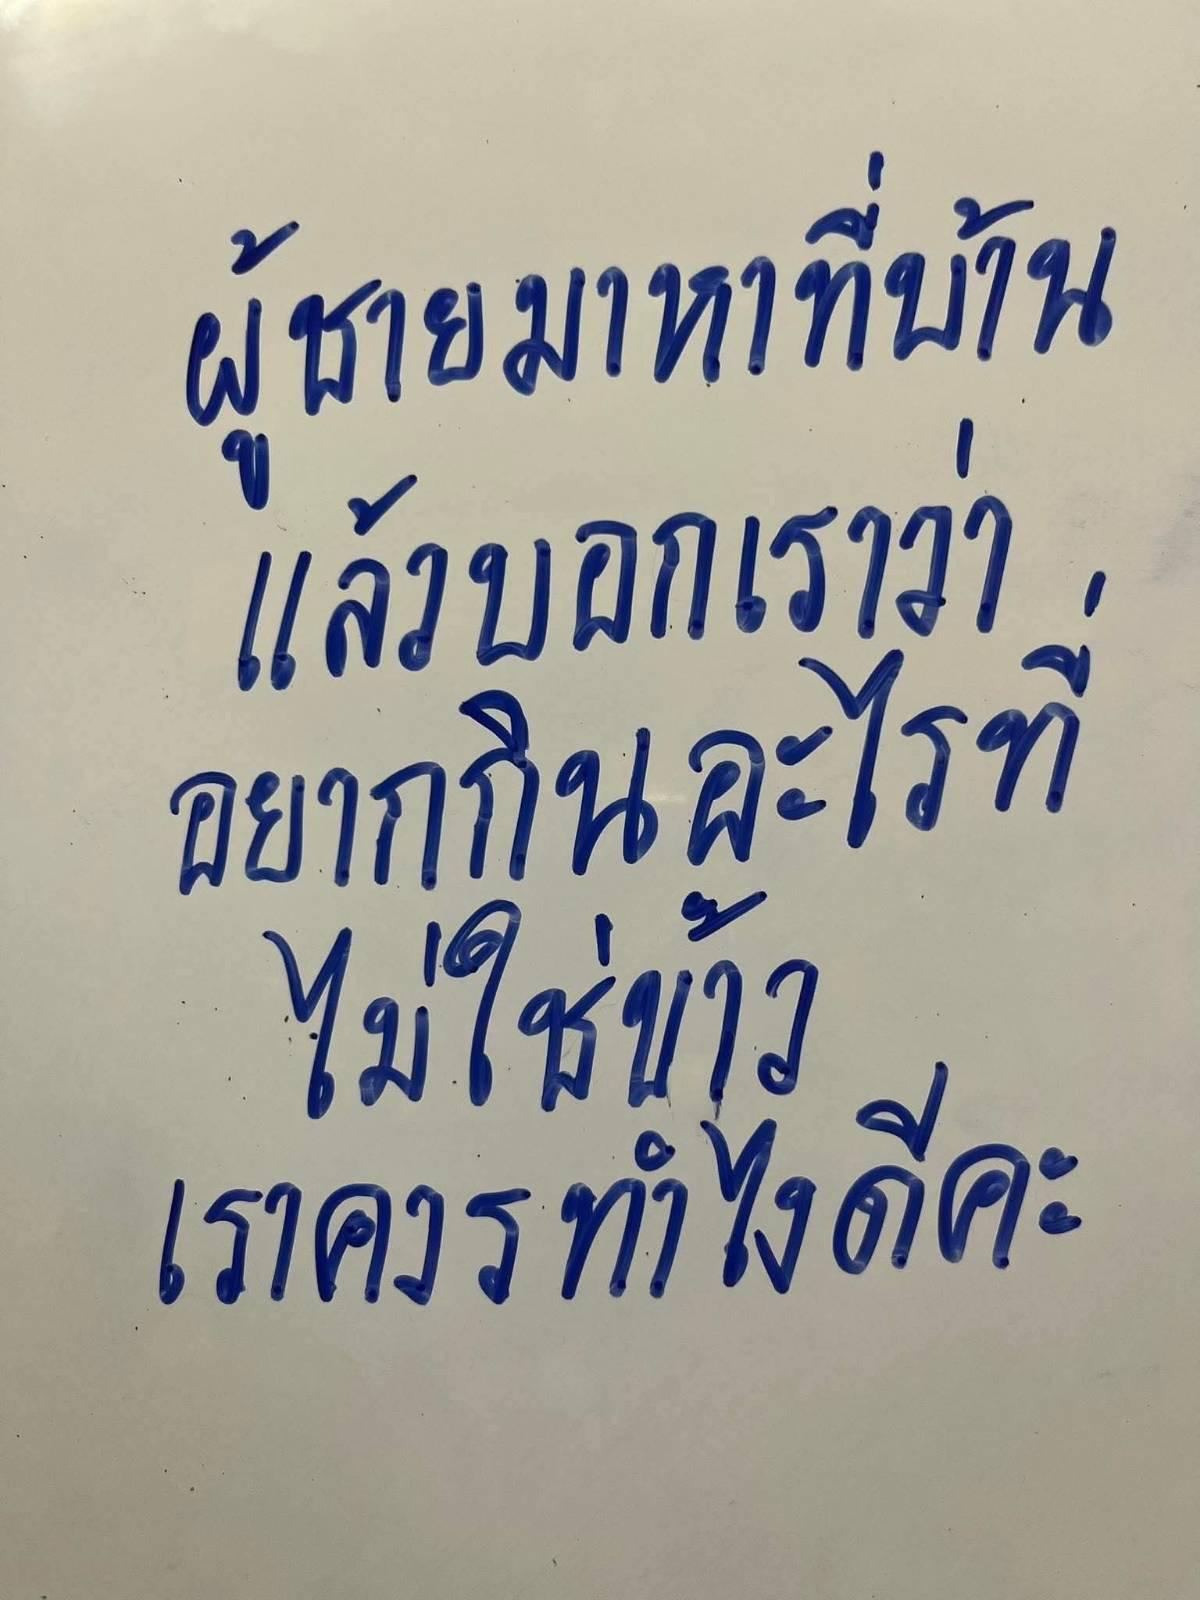 ผู้ชายมาหาที่บ้าน
แล้วบอกเราว่า
อยากกินอะไรที่
ไม่ใช่ข้าว
เราควรทำไงดีคะ